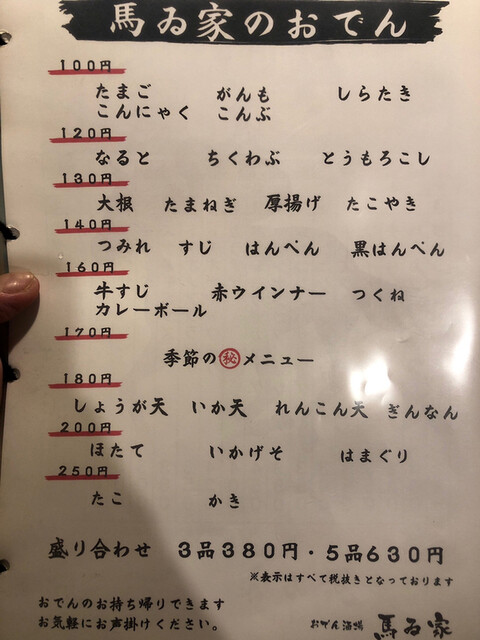 馬ゐ家のおでん
100円
たまご がんも しらたき
こんにゃく こんぶ
120円
なると ちくわぶ とうもろこし
130円
大根 たまねぎ 厚揚げ たこやき
140円
つみれ すじ はんぺん 黒はんぺん
160円
牛すじ 赤ウインナー つくね
カレーボール
170円
季節の㊙メニュー
180円
しょうが天 いか天 れんこん天 ぎんなん
200円
ほたて いかげそ はまぐり
250円
たこ かき
盛り合わせ 3品380円・5品630円
※表示はすべて税抜きとなっております
おでんのお持ち帰りできます
お気軽にお声掛けください。
おでん酒場 馬ゐ家